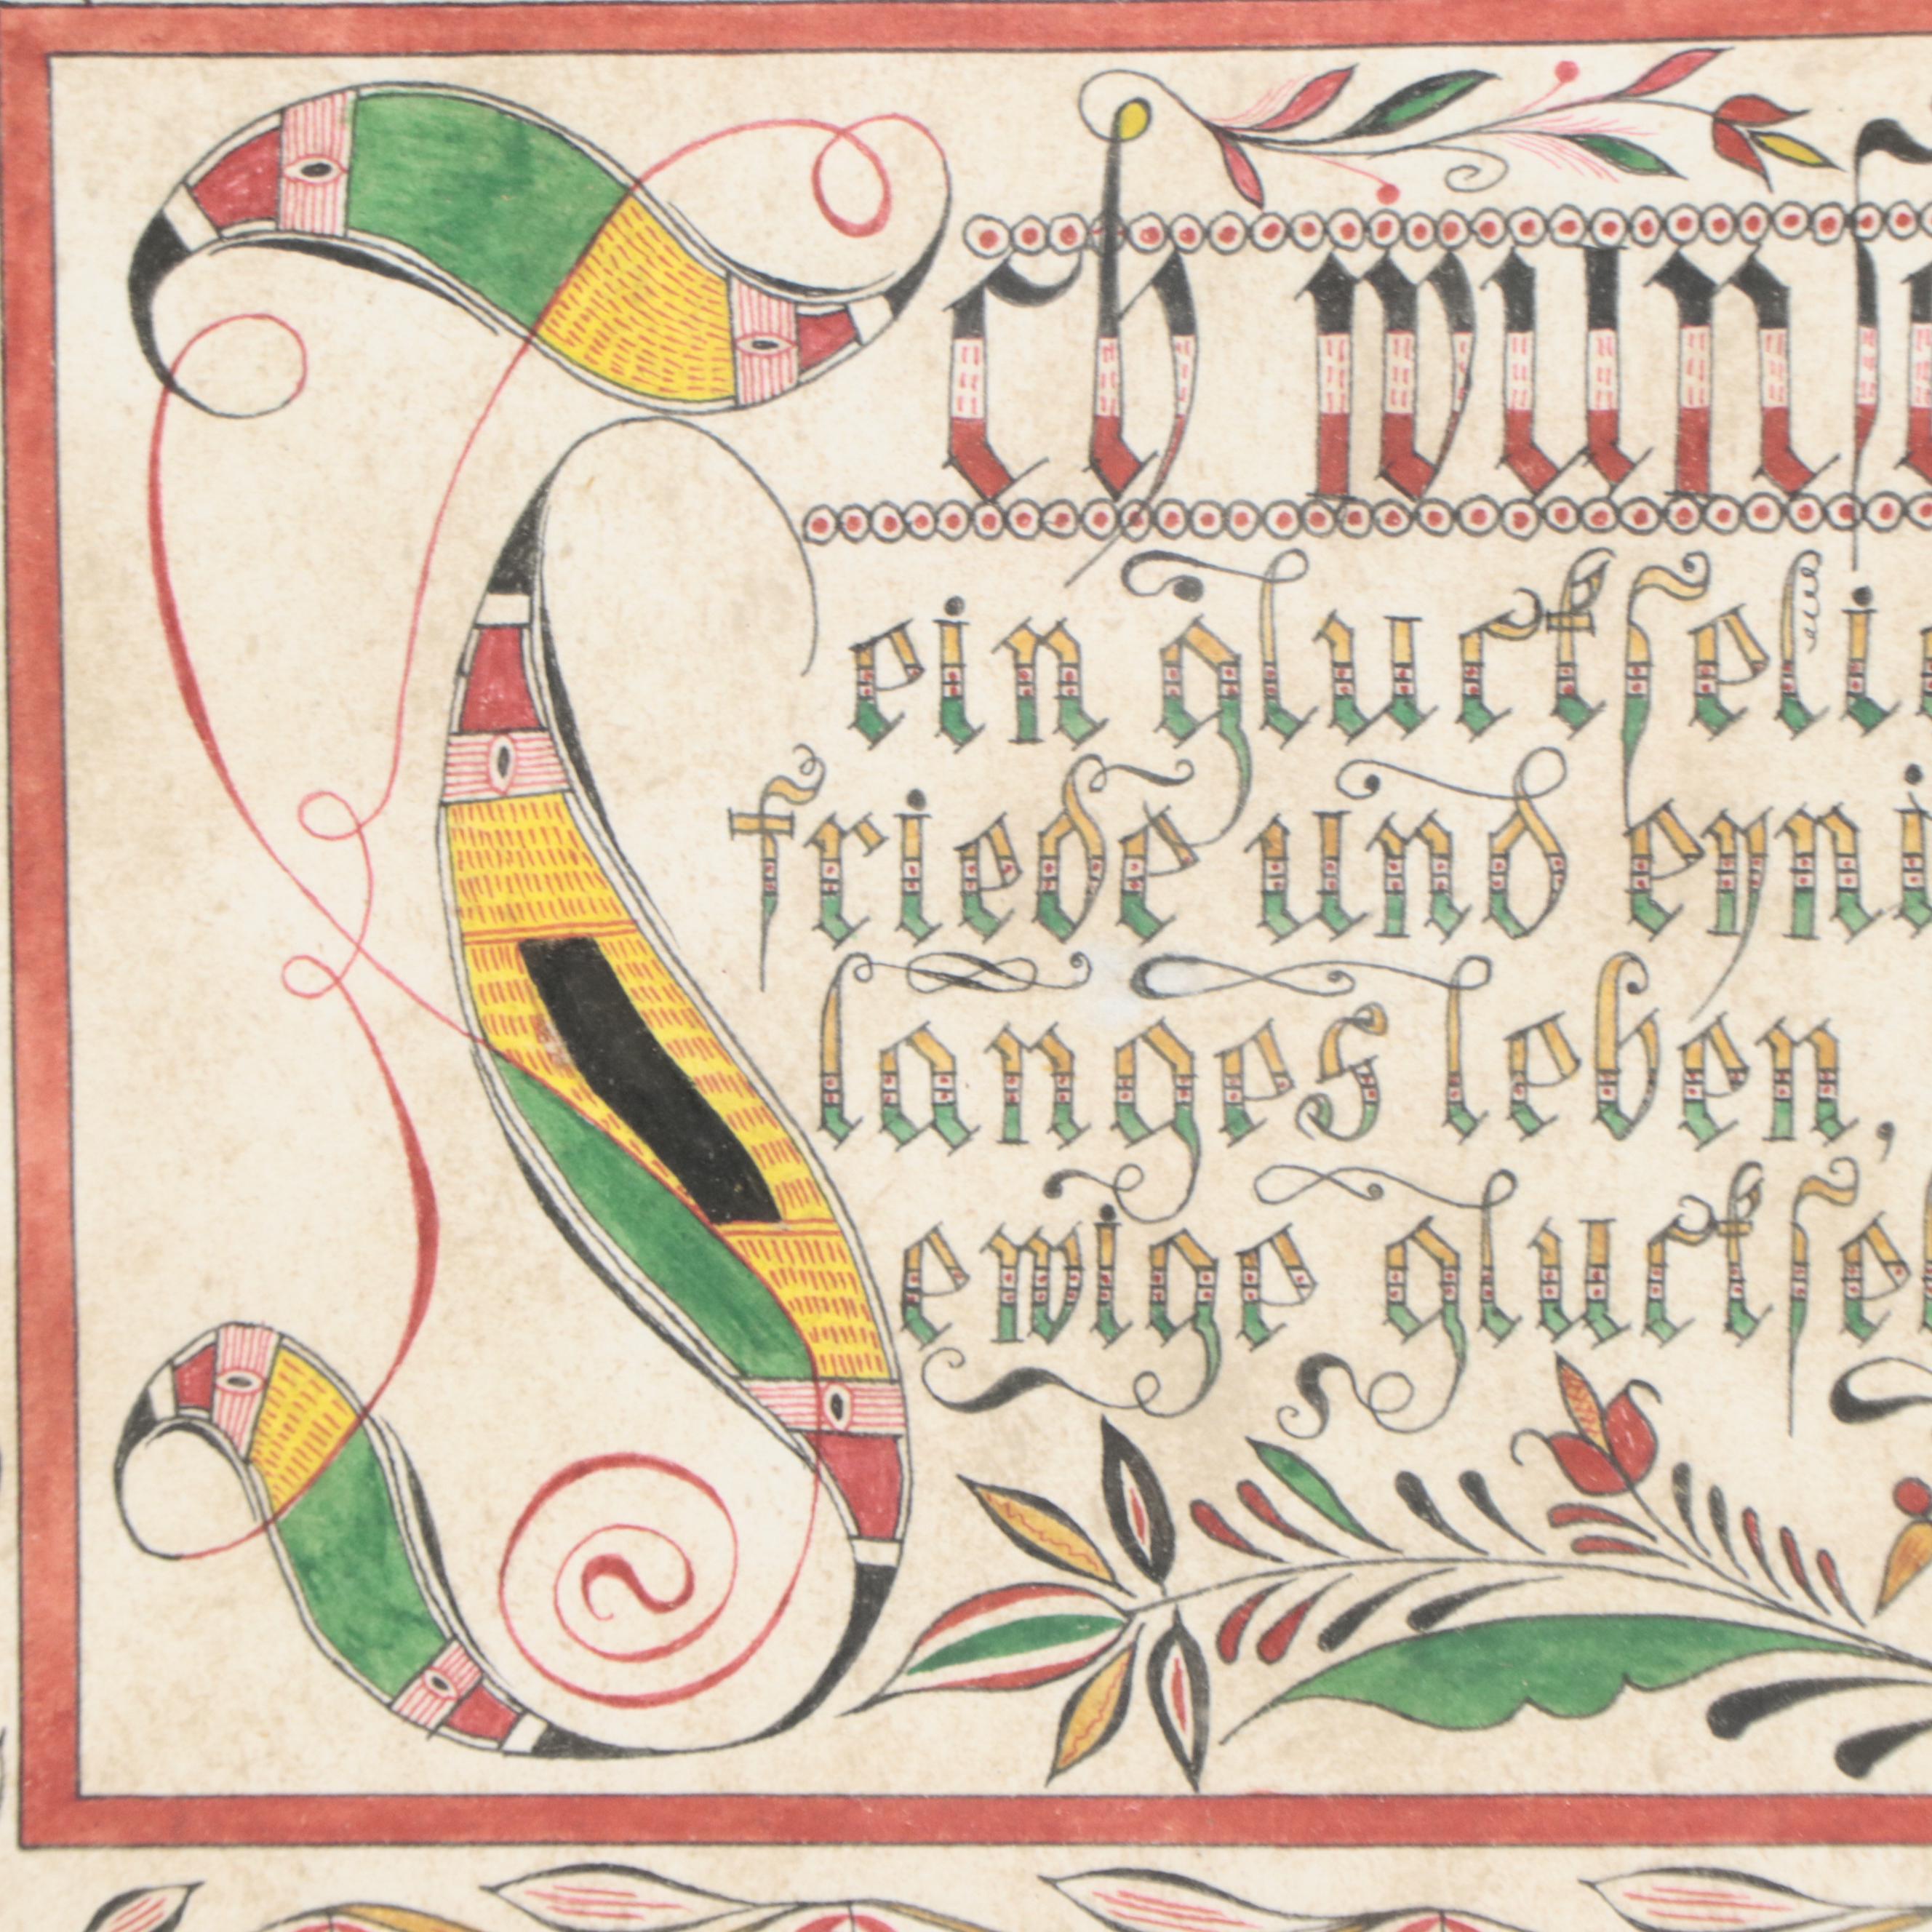 Ich wuns
ein gluckseli
friede und eyni
langes leben,
ewige gluckse